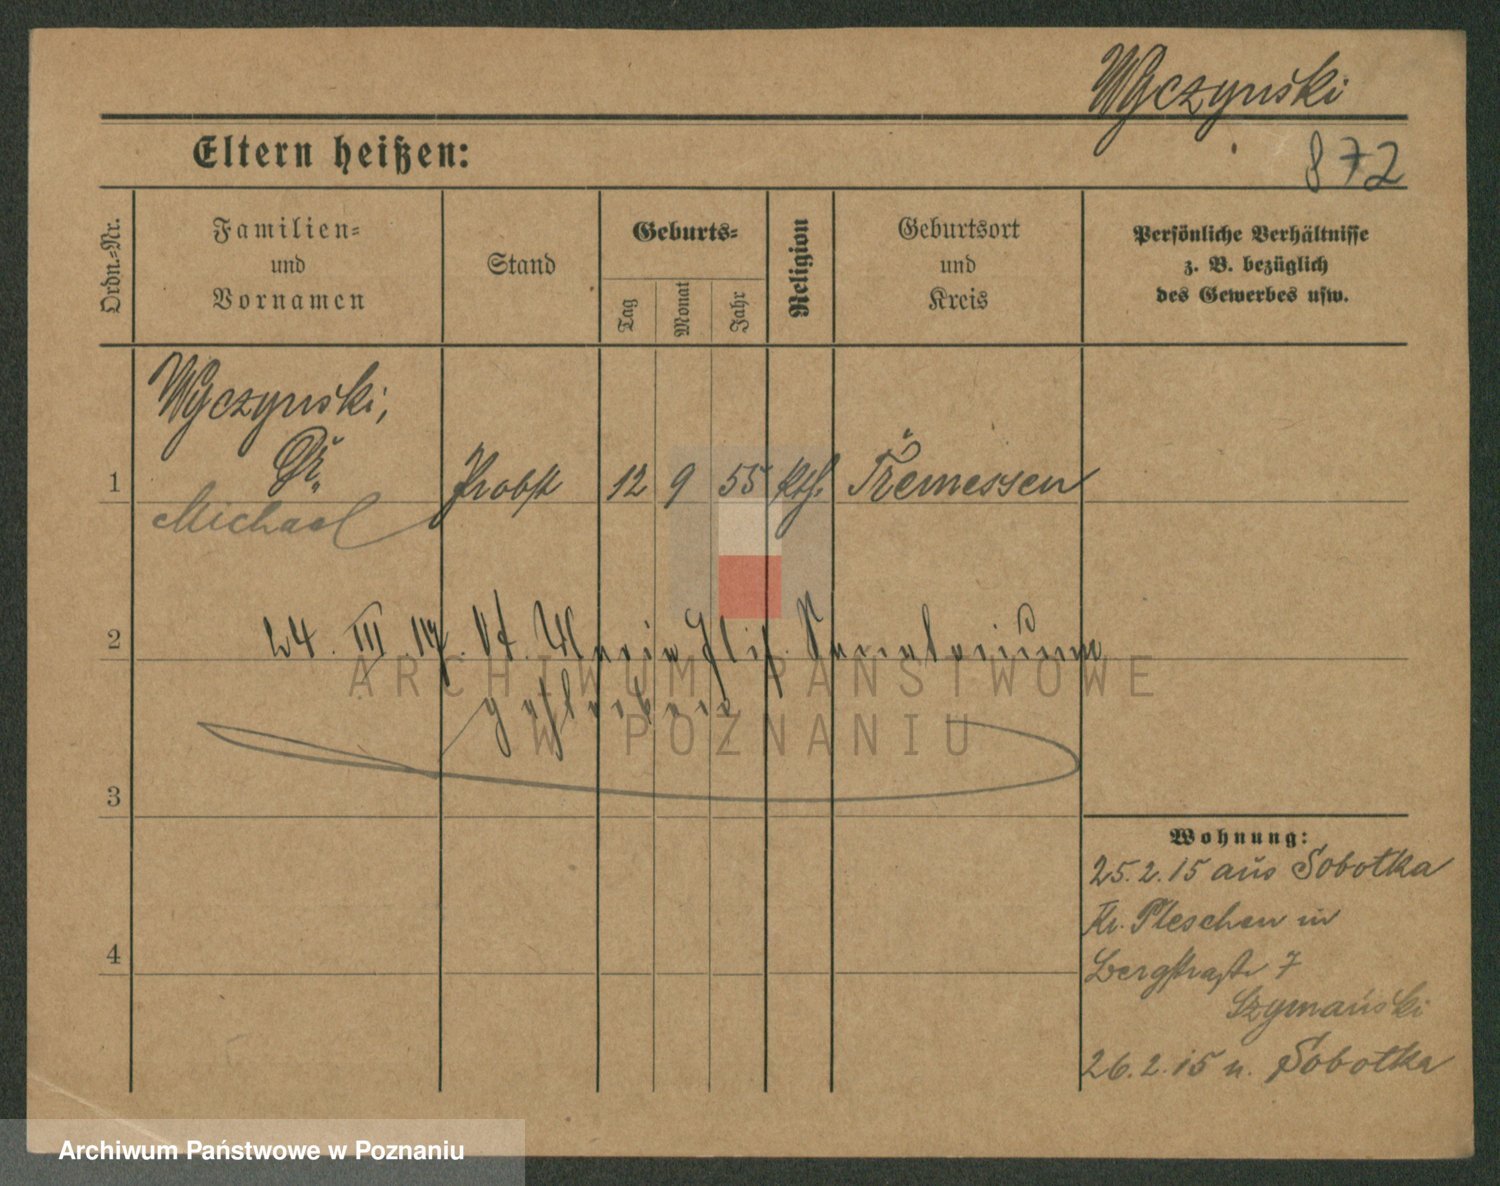 Wyczynski
872
Eltern heißen:
Ordn.-Nr.
Familien-
und
Vornamen
Stand
Geburts-
Tag
Monat
Jahr
Religion
Geburtsort
und
Kreis
Persönliche Verhältnisse
z. B. bezüglich
des Gewerbes usw.
Wyczynski,
Dr.
1
Michael
Probst
12
9
55
kth.
Tremessen
2
24. III. 17. St. Maria Sanatorium
ARCHIWUM PAŃSTWOWE
W POZNANIU
3
4
Wohnung:
25.2.15 aus Sobotka
Kr. Pleschen in
Bergstraße 7
Szymański
26.2.15 n. Sobotka
Archiwum Państwowe w Poznaniu